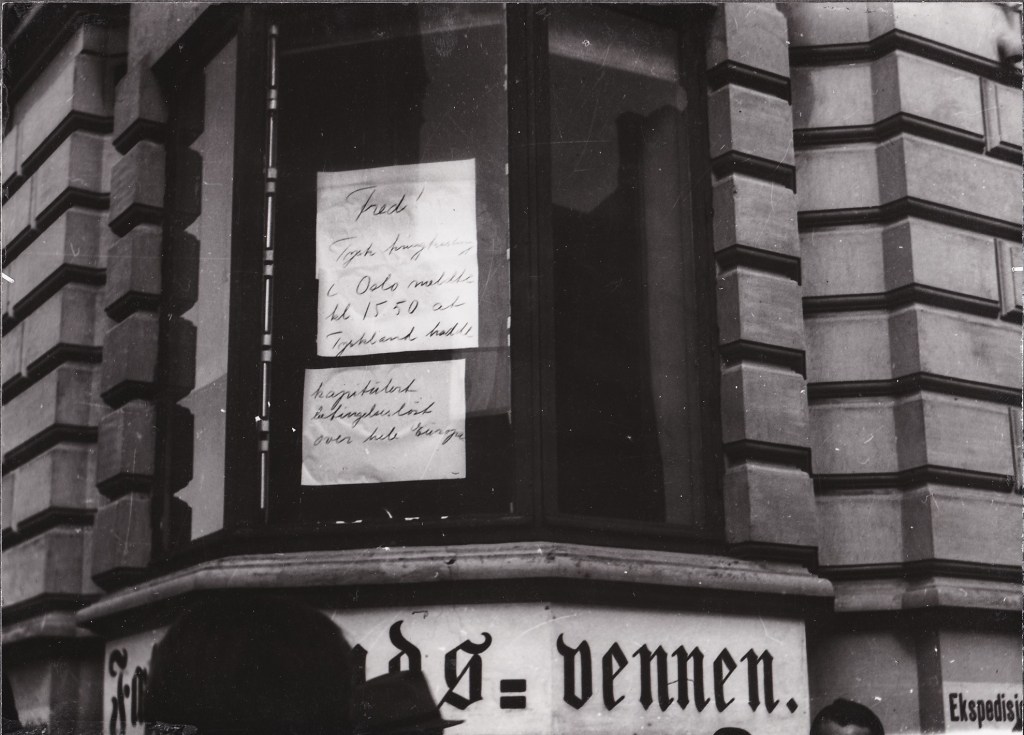 Fred!
Tysk kringkasting
i Oslo meldte
kl 15 50 at
Tyskland hadde
kapitulert
betingelseslöst
over hele Europa
ds = vennen.
Ekspedisj